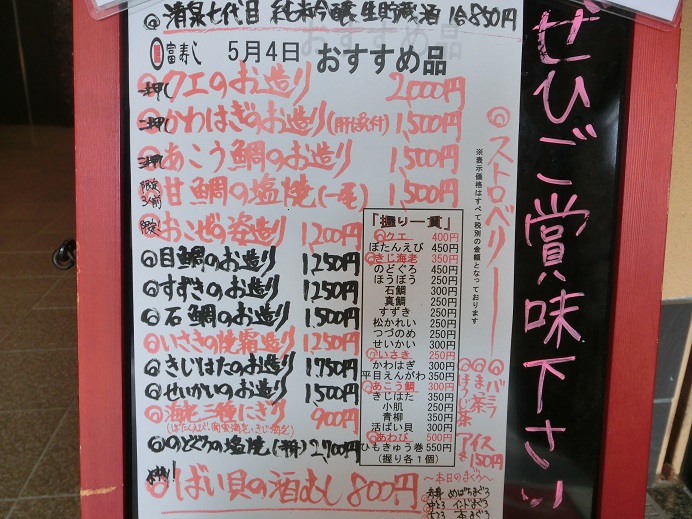 ◎清泉七代目 純米吟醸生貯蔵酒 1合850円
富寿し 5月4日 おすすめ品
一押し ◎クエのお造り 2,000円
二押し ◎かわはぎのお造り(肝醤油付) 1,500円
三押し ◎あこう鯛のお造り 1,500円
限定3名前 ◎甘鯛の塩焼(一尾) 1,500円
限定! ◎おこぜの姿造り 1,200円
◎目鯛のお造り 1250円
◎すずきのお造り 1250円
◎石鯛のお造り 1,500円
◎いさきの焼霜造り 1250円
◎きじはたのお造り 1750円
◎せいかいのお造り 1500円
◎海老三種にぎり 900円
(ぼたんえび、南蛮海老、きじ海老)
◎のどぐろの塩焼(半身) 2,700円
◎ばい貝の酒むし 800円
「握り一貫」
◎クエ 400円
ぼたんえび 450円
◎きじ海老 350円
のどぐろ 450円
ほうぼう 250円
石鯛 300円
真鯛 250円
すずき 250円
松かれい 250円
つづのめ 250円
せいかい 300円
◎いさき 250円
かわはぎ 300円
平目えんがわ 350円
◎あこう鯛 300円
きじはた 350円
小肌 250円
青柳 350円
活ばい貝 300円
◎あわび 500円
ひもきゅう巻 550円
(握り各1個)
※表示価格はすべて税別の金額となっております
◎ストロベリー
◎バニラ
◎まっ茶
◎ほうじ茶
アイス
各150円
~本日のまぐろ~
赤身 めばちまぐろ
中とろ インドまぐろ
大とろ 本まぐろ
ぜひご賞味下さい